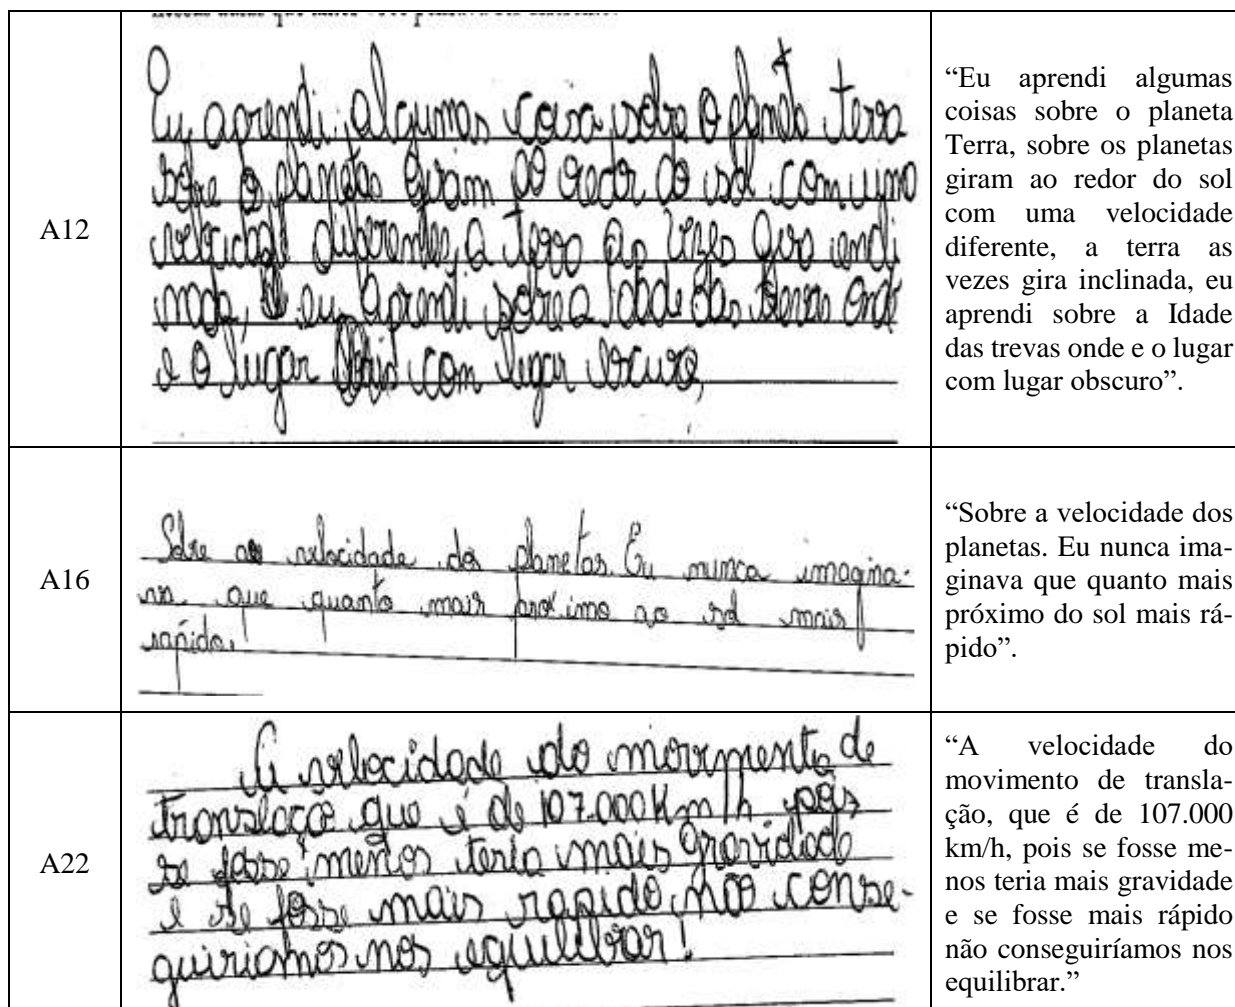 A12
Eu aprendi algumas coisa sobre o planeta terra
sobre os planetas giram ao redor do sol com uma
velocidade diferentes, a terra as vezes gira incli
nada, eu aprendi sobre a Idade das trevas onde
e o lugar com lugar escuro,
“Eu aprendi algumas
coisas sobre o planeta
Terra, sobre os planetas
giram ao redor do sol
com uma velocidade
diferente, a terra as
vezes gira inclinada, eu
aprendi sobre a Idade
das trevas onde e o lugar
com lugar obscuro”.
A16
Sobre as velocidade dos planetas. Eu nunca imagina-
va que quanto mais próximo ao sol mais
rapido.
“Sobre a velocidade dos
planetas. Eu nunca ima-
ginava que quanto mais
próximo do sol mais rá-
pido”.
A22
A velocidade do movimento de
translação que é de 107.000Km/h pois
se fosse menos teria mais gravidade
e se fosse mais rapido não conse-
guiriamos nos equilibrar!
“A velocidade do
movimento de transla-
ção, que é de 107.000
km/h, pois se fosse me-
nos teria mais gravidade
e se fosse mais rápido
não conseguiríamos nos
equilibrar.”